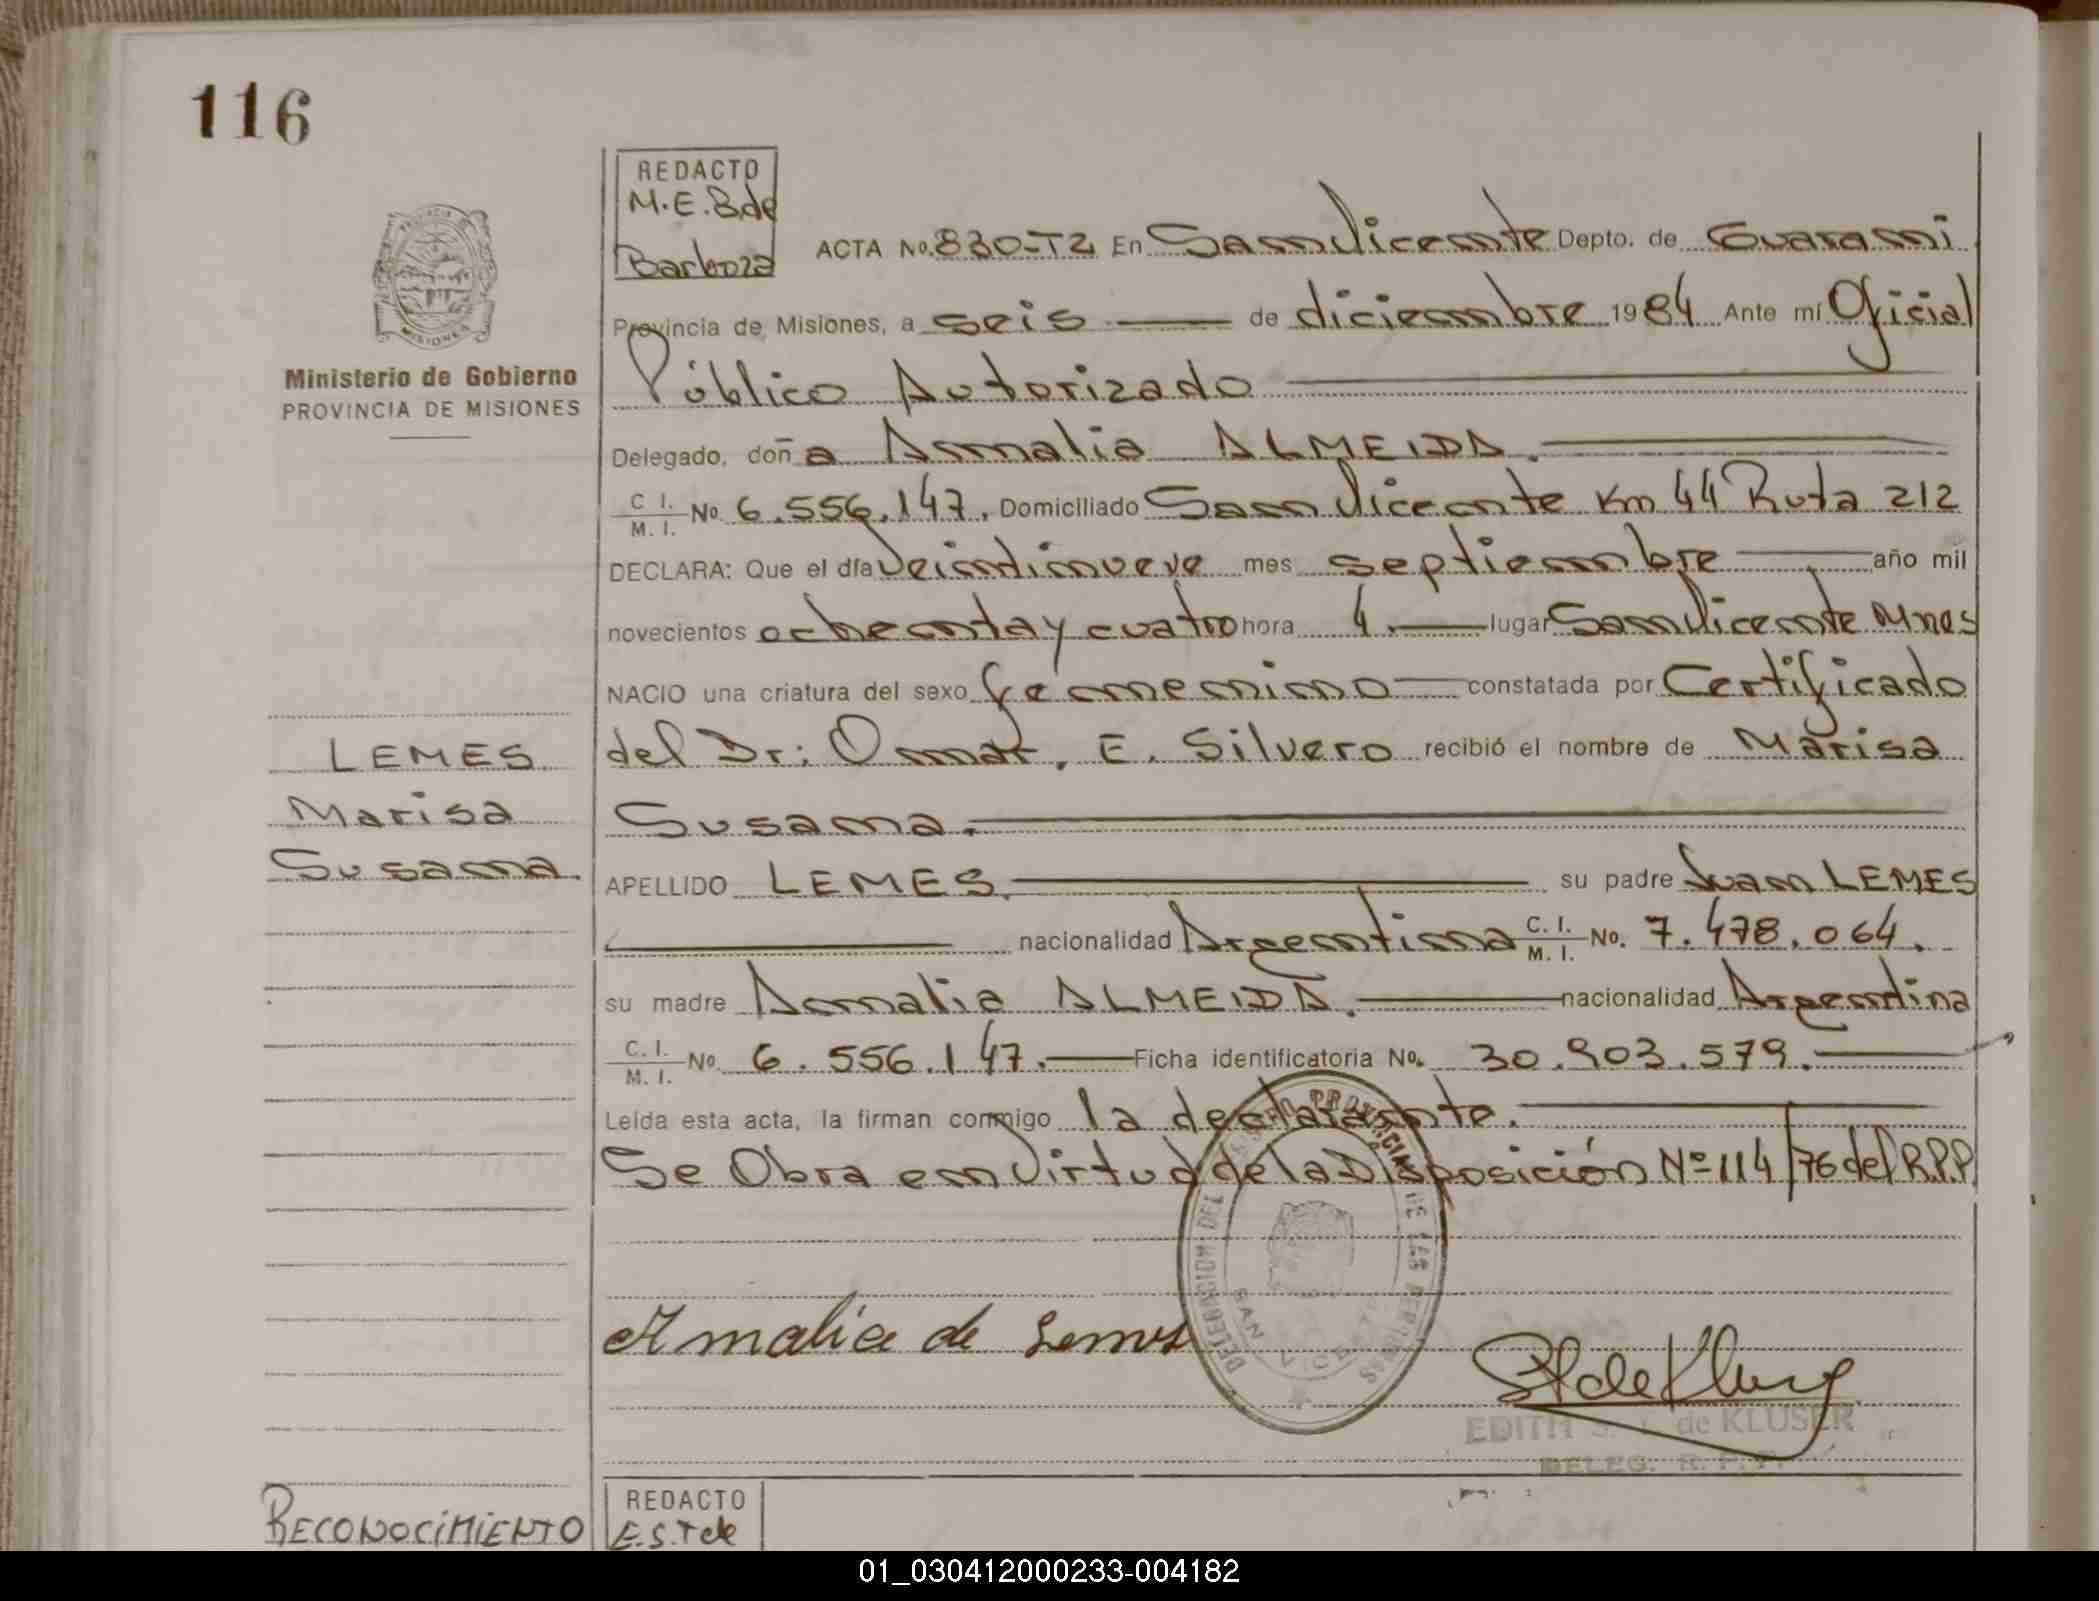 116
REDACTO
M.E.B.de
Barboza
ACTA No. 830-T2 En San Vicente Depto. de Guarani
Provincia de Misiones, a seis de diciembre 1984 Ante mí Oficial
Público Autorizado
Ministerio de Gobierno
PROVINCIA DE MISIONES
Delegado, doña Amalia ALMEIDA.
C I. M. I. No. 6.556.147. Domiciliado San Vicente Km 44 Ruta 212
DECLARA: Que el día Veintinueve mes septiembre año mil
novecientos ochenta y cuatro hora 4. lugar San Vicente Mnes
NACIO una criatura del sexo femenino constatada por Certificado
del Dr: Omar, E. Silvero recibió el nombre de Marisa
Susana.
LEMES
Marisa
Susana.
APELLIDO LEMES. su padre Juan LEMES
nacionalidad Argentina C. I. M. I. No. 7.478.064.
su madre Amalia ALMEIDA. nacionalidad Argentina
C. I. M. I. No. 6.556.147. Ficha identificatoria No. 30.903.579.
Leída esta acta, la firman conmigo la declarante.
Se Obra en Virtud de la Disposición Nº 114/76 del R.P.P.
PROVINCIAL DE LAS PERSONAS
DELEGACION DEL
SAN VICENTE
Amalia de Lemes
EDITH S. de KLUSER
DELEG. R. P. P.
RECONOCIMIENTO
REDACTO
E.S.T de
01_030412000233-004182